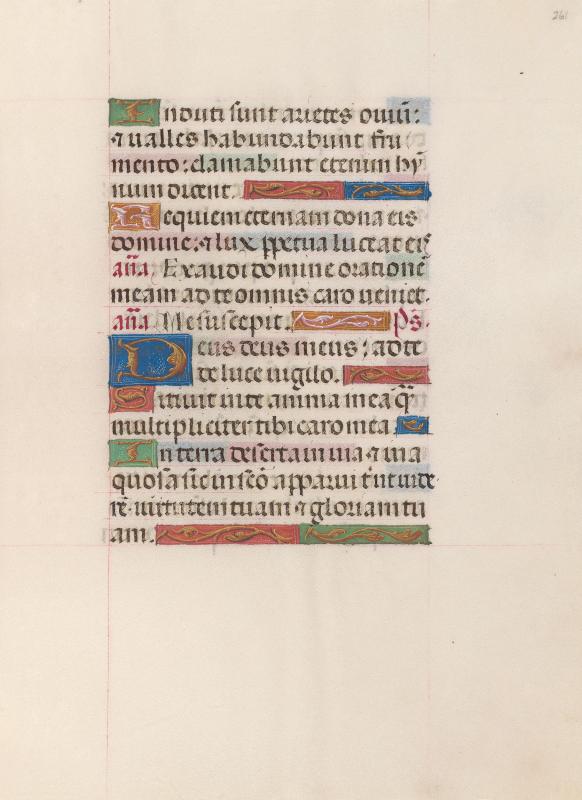 261
Induti sunt arietes ouiũ:
⁊ ualles habundabunt fru
mento: clamabunt etenim hỹ
num dicent.
Requiem eternam dona eis
domine: ⁊ lux ꝑpetua luceat eis
añã. Exaudi domine orationẽ
meam ad te omnis caro ueniet.
añã. Me suscepit. Ps.
Deus deus meus: ad te
de luce uigilo.
Sitiuit in te anima mea q̃
multipliciter tibi caro mea.
In terra deserta in uia ⁊ in a
quosa sic in sc̃o apparui t' ut uide
rẽ uirtutem tuam ⁊ gloriam tu
am.